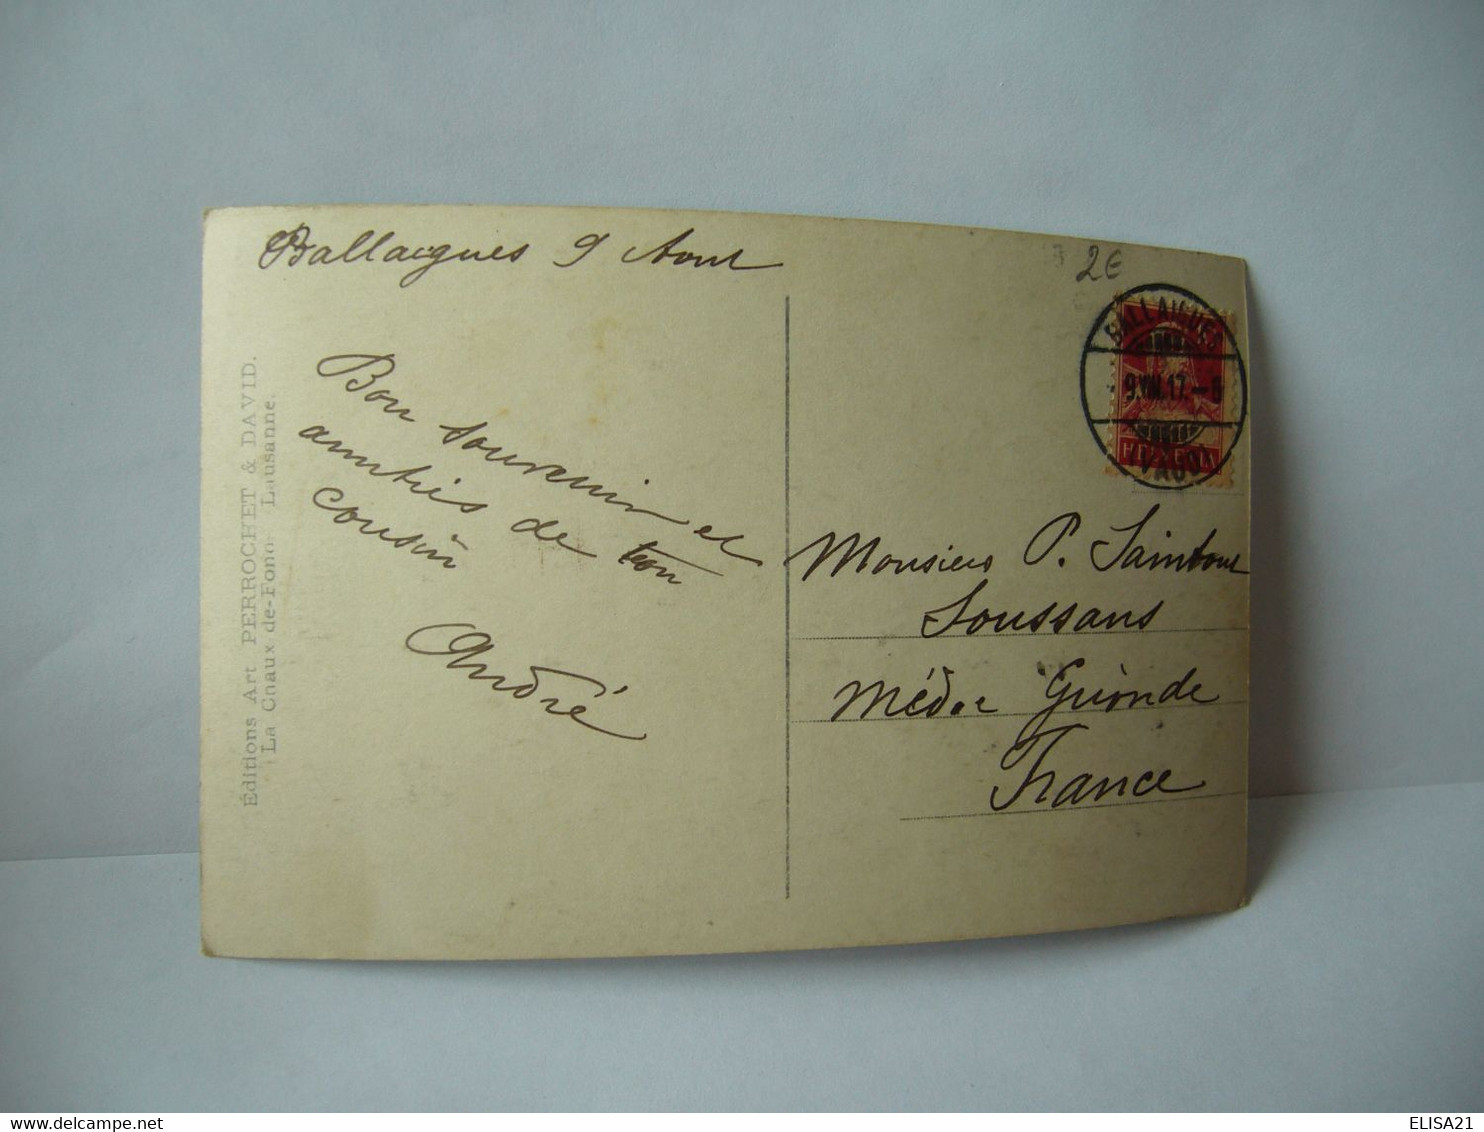 Ballaigues 9 Aout
2€
BALLAIGUES
9.VIII.17.-8
HELVETIA
(VAUD)
Bon souvenir et
amitiés de ton
cousin
André
Monsieur P. Saintout
Soussans
Médoc Gironde
France
Éditions Art PERROCHET & DAVID.
La Chaux-de-Fonds Lausanne.
delcampe.net
ELISA21